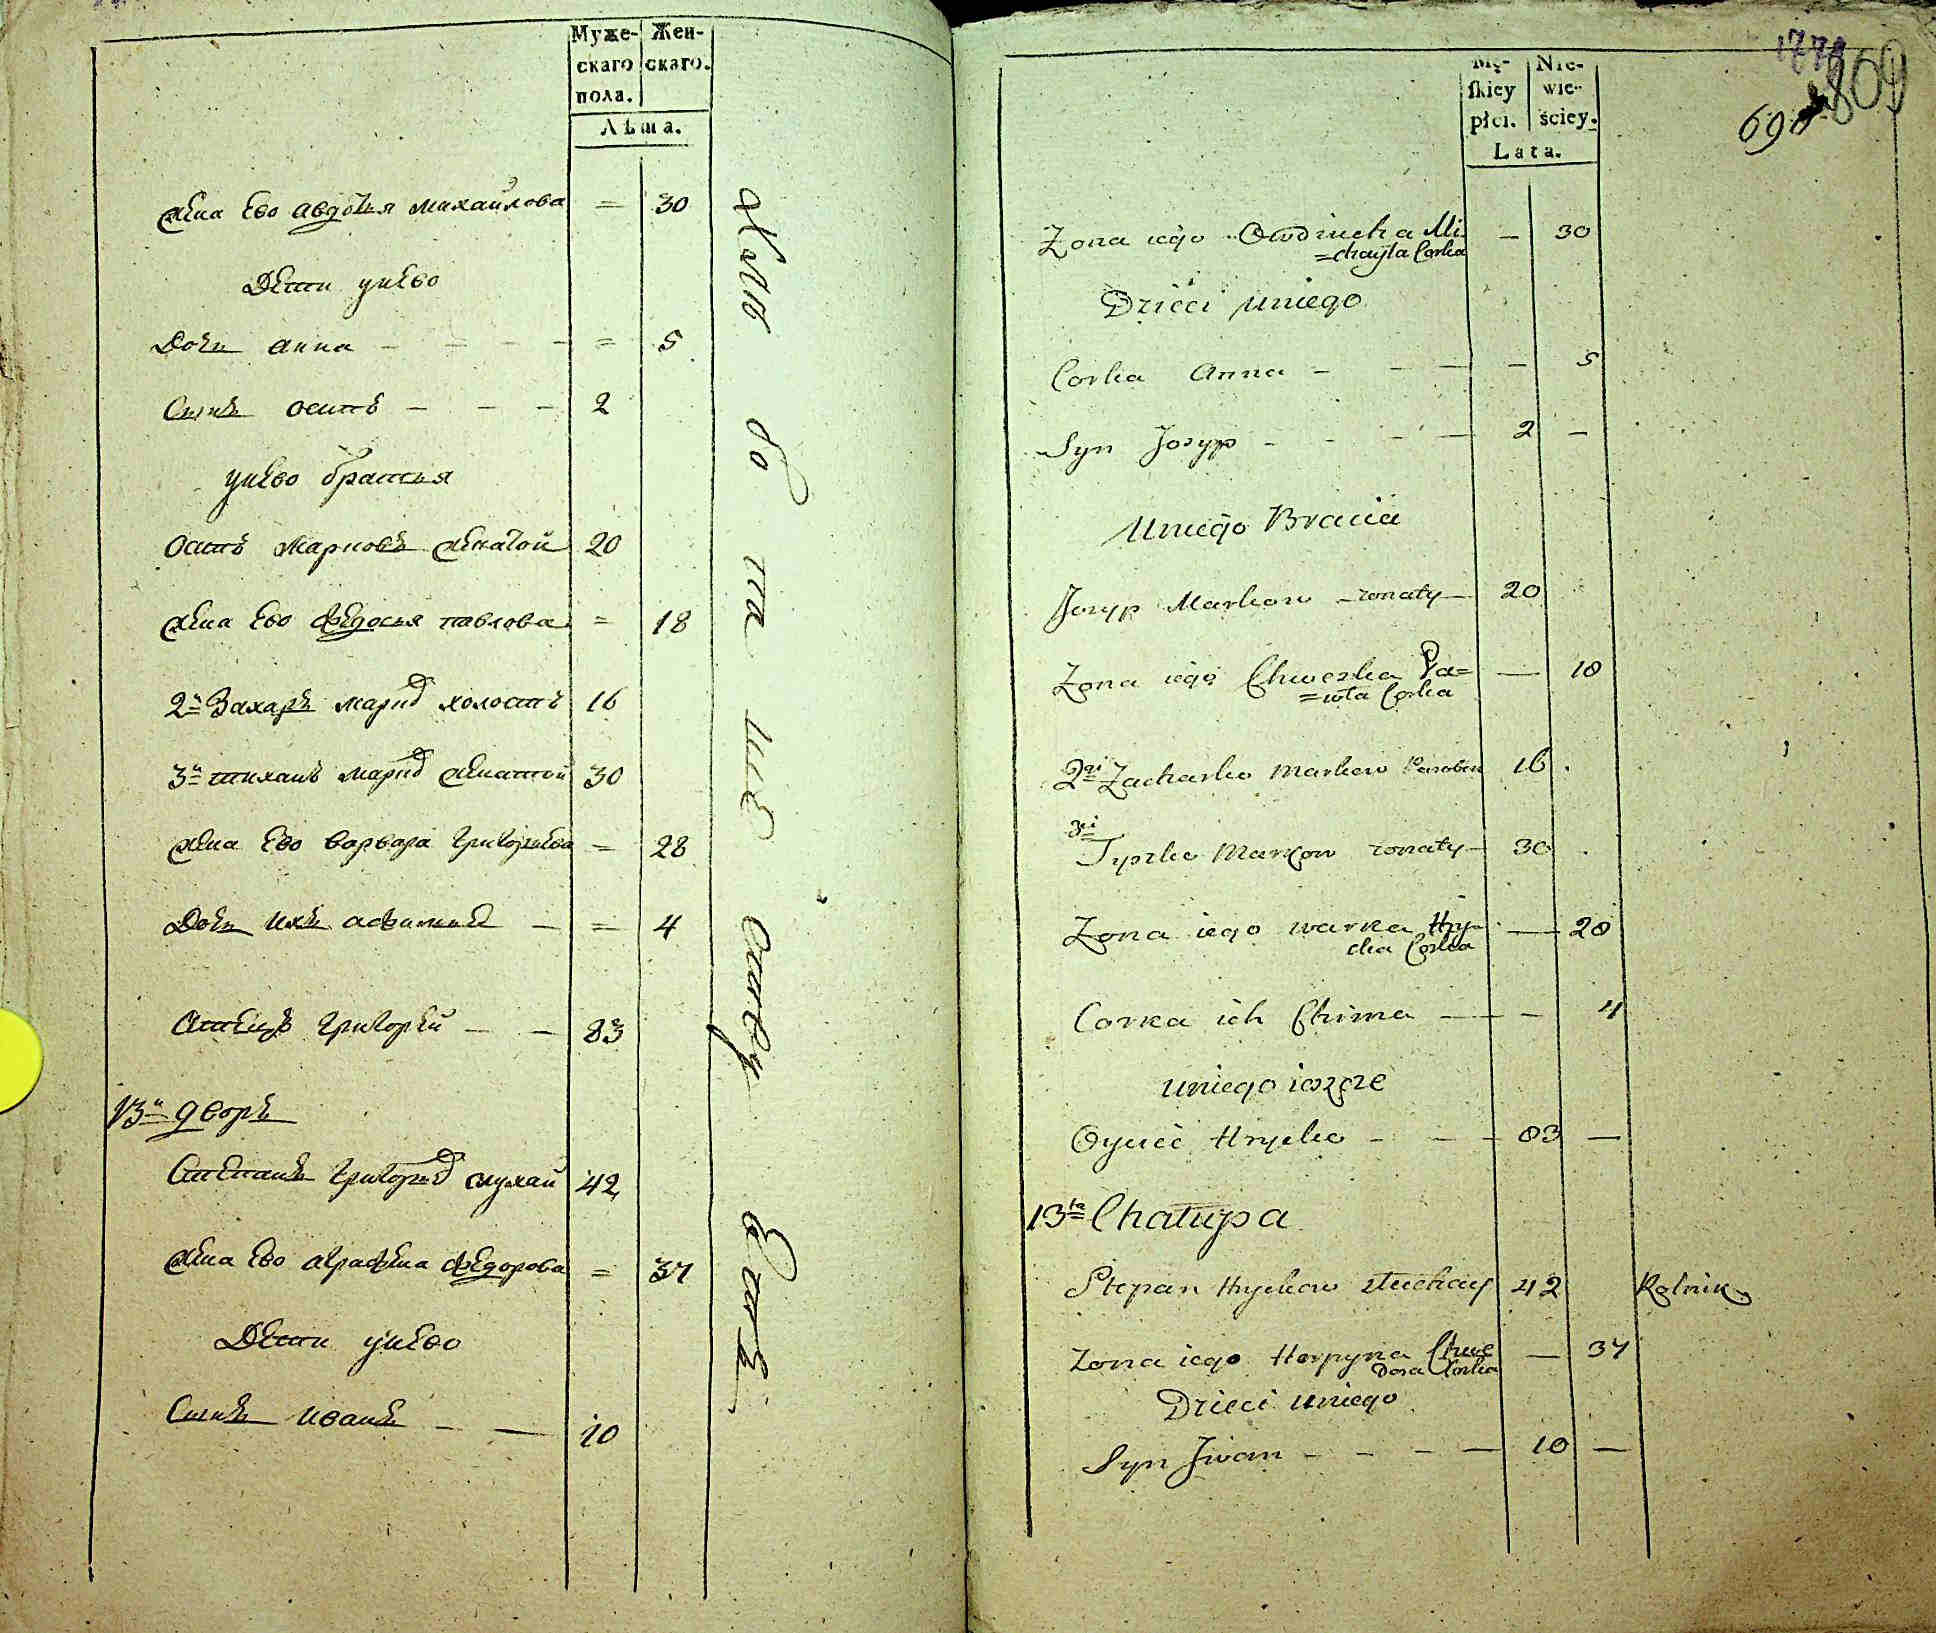 Муже-
скаго
пола.
Жен-
скаго.
Лѣта.
Жена Ево Авдотья Михайлова = 30
Дети унево
Дочь Анна - - - - = 5
Сынъ Осипъ - - - 2
унево братья
Осипъ Марковъ Женатой 20
Жена Ево Федосья павлова = 18
2й Захаръ Марко холостъ 16
3й Марко Женатой 30
Жена Ево Варвара Григорьева = 28
Дочь Ихъ - = 4
Отецъ Григорей - - 83
13й дворъ
Степанъ слухай 42
Жена Ево Аграфена Федорова = 37
Дети унево
Сынъ Иванъ - - 10
Mę-
skiey
płci.
Nie-
wie-
ściey.
Lata.
809
Zona iego Owdziucha Mi- - 30
=chayła Corka
Dzieci uniego
Corka Anna - - - - 5
Syn Josyp - - - - 2 -
Uniego Bracia
Josyp Markow - zonaty - 20
Zona iego Chweska Pa= - 18
=wła Corka
2gi Zacharko Markow Parobek 16
3ci
Tyszko Markow zonaty - 30
Zona iego warka Hry- - 28
cka Corka
Corka ich Chima - - - 4
uniego iszcze
Oyciec Hrycko - - - 83 -
13ta Chałupa
Stepan Hryckow słuchay 42 Rolnik
Zona iego Horpyna Chwe - 37
Dora Corka
Dzieci uniego
Syn Jwan - - - - 10 -